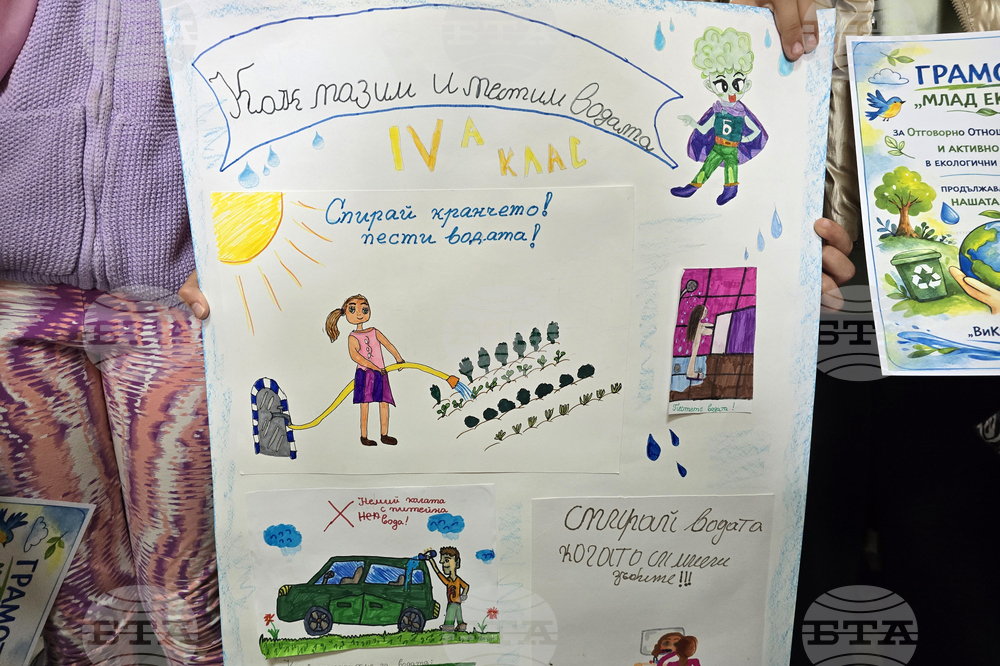 Как пазим и пестим водата
IV А КЛАС
Спирай кранчето!
пести водата!
Б
Пестете водата!
Немий колата
с питейна
вода!
Спирай водата
когато си миеш
зъбите!!!
ГРАМО
„МЛАД ЕК
ЗА ОТГОВОРНО ОТНОШ
И АКТИВНО
В ЕКОЛОГИЧНИ
ПРОДЪЛЖАВА
НАШАТА
„ВиК
ГРАМО
БТА